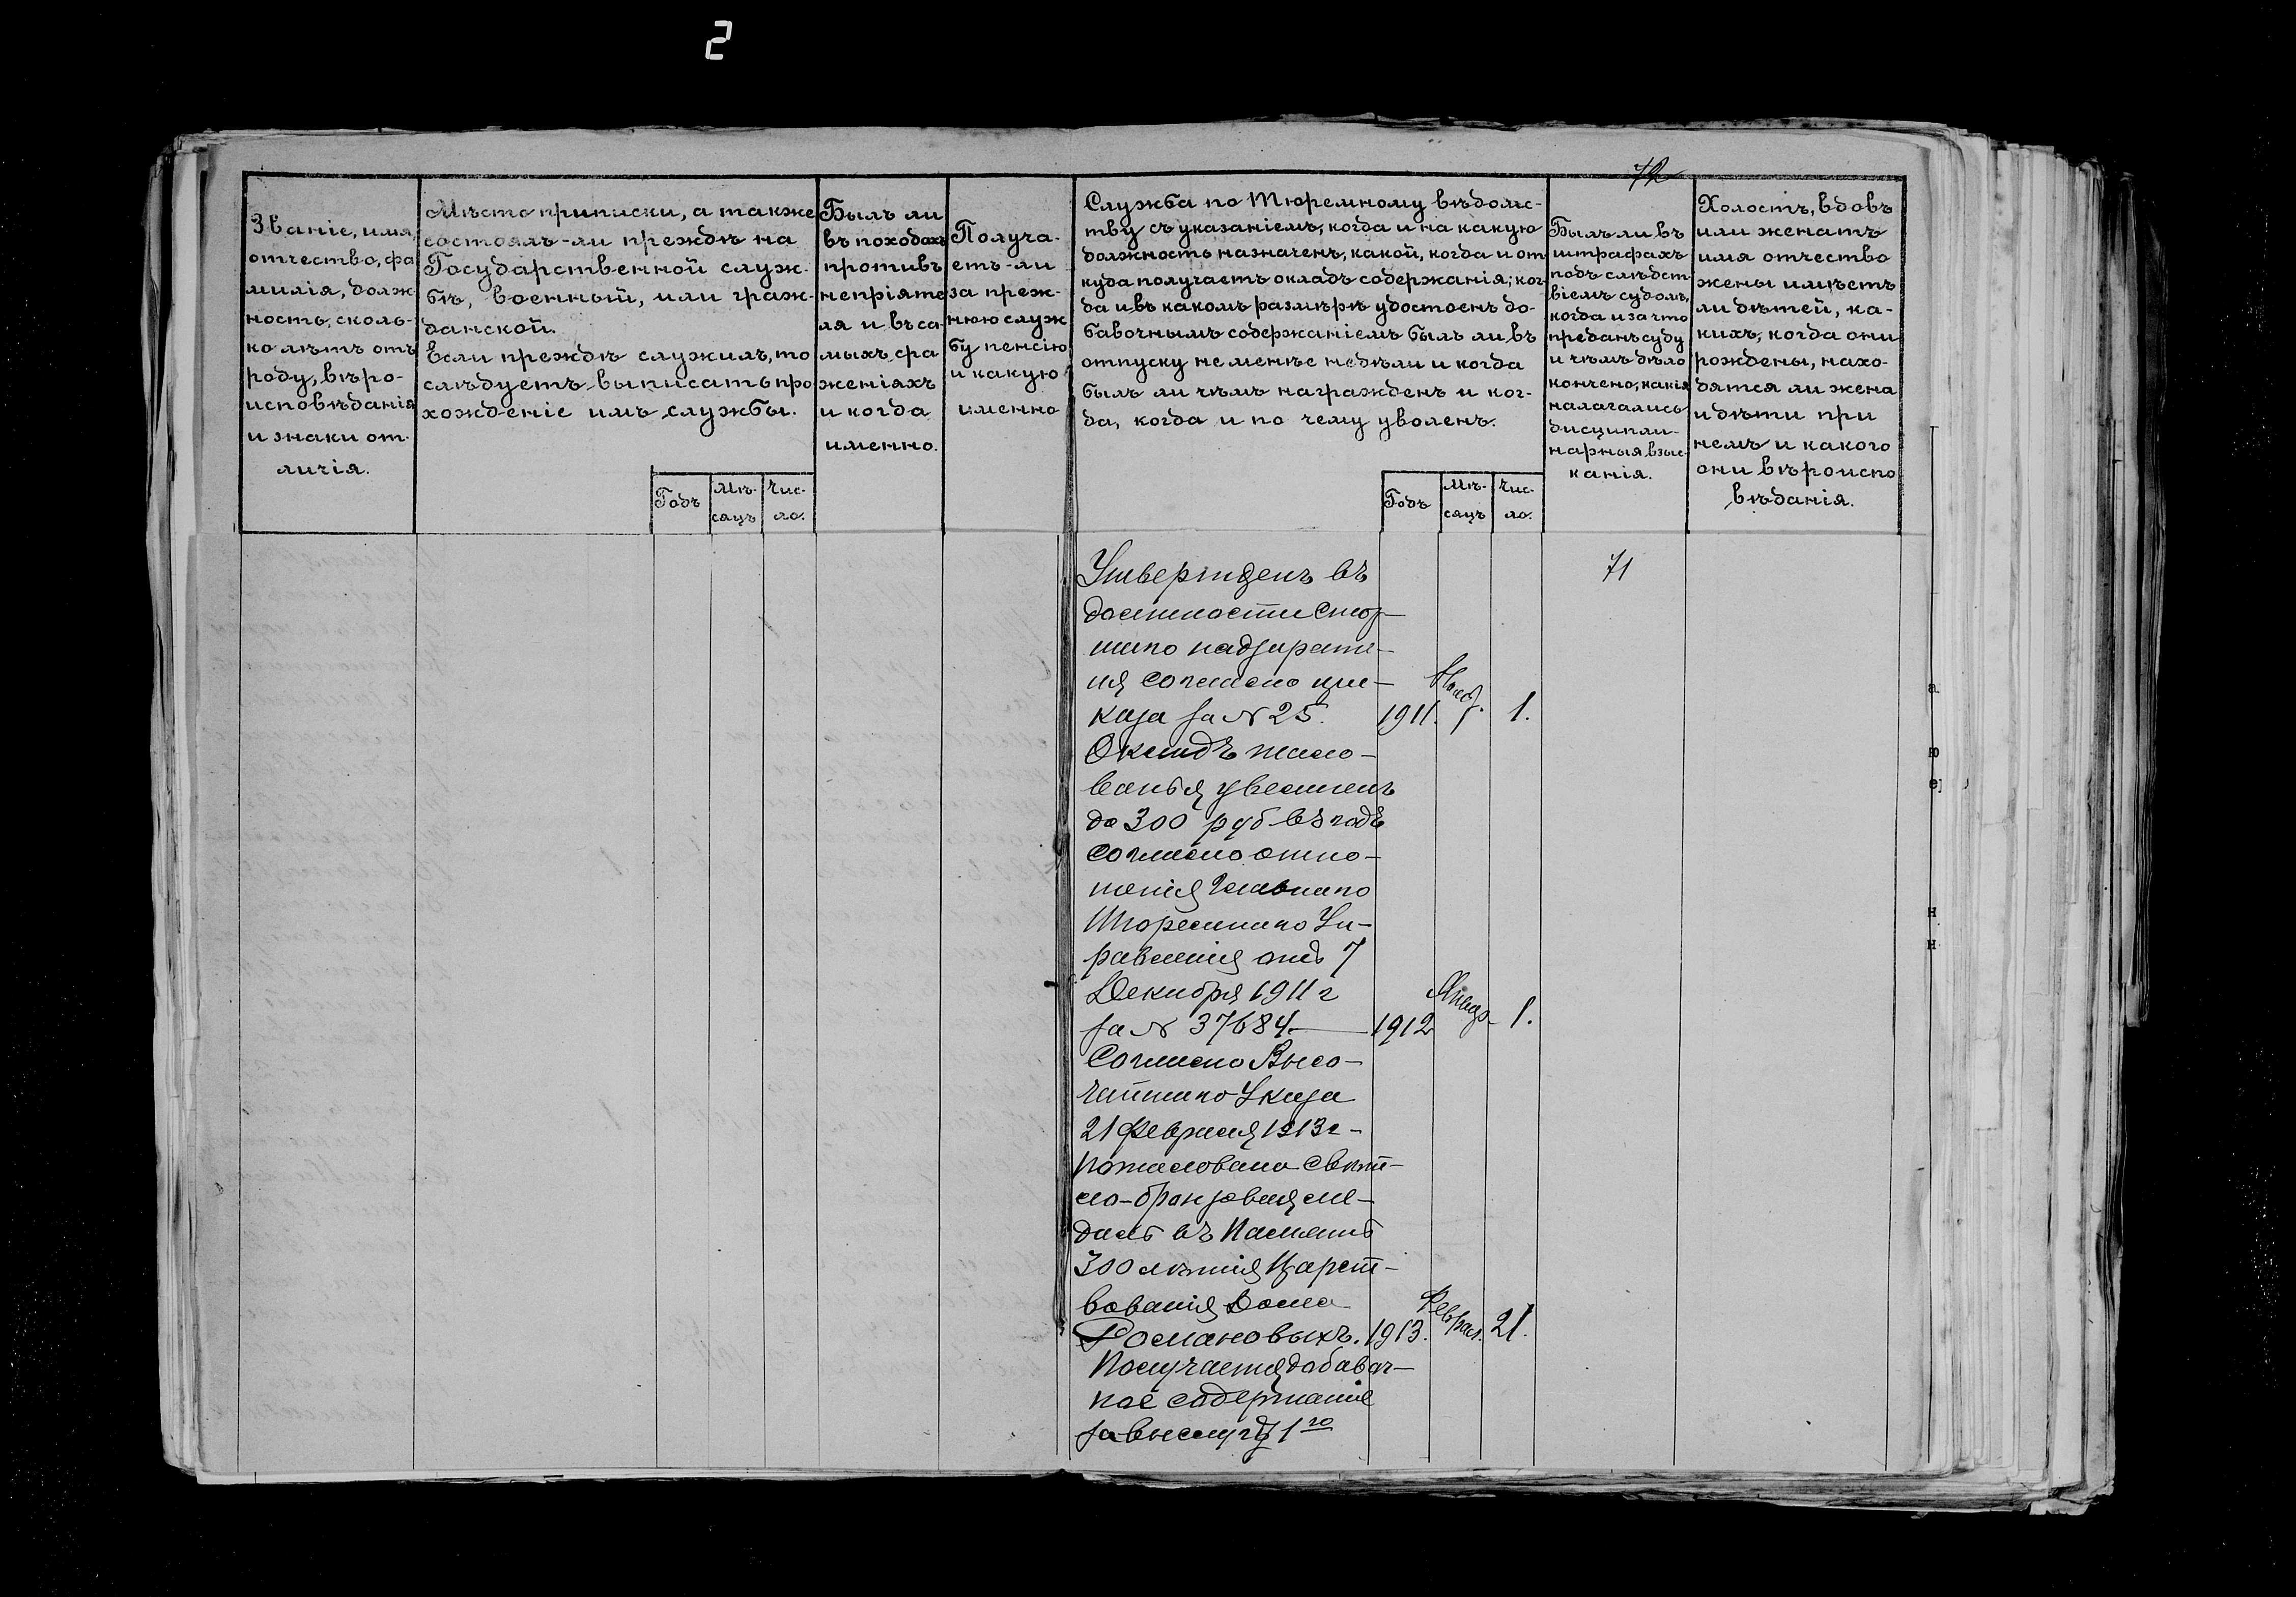 2
72
Званіе, имя,
отчество, фа
милія, долж-
ность, сколь-
ко лѣтъ отъ
роду, вѣро-
исповѣданія
и знаки от-
личія.
Мѣсто приписки, а также
состоялъ-ли преждѣ на
Государственной служ-
бѣ, военный, или граж-
данской.
Если преждѣ служилъ, то
слѣдуетъ выписать про
хожденіе имъ службы.
Годъ
Мѣ-
сяцъ
Чис-
ло.
Былъ ли
въ походахъ
противъ
непріяте
ля и въ са-
мыхъ сра
женіяхъ
и когда
именно.
Получа-
етъ-ли
за преж-
нюю служ
бу пенсію
и какую
именно
Служба по Тюремному вѣдомс-
тву съ указаніемъ, когда и на какую
должность назначенъ, какой, когда и от
куда получаетъ окладъ содержанія; ког-
да и въ какомъ размѣрѣ удостоенъ до-
бавочнымъ содержаніемъ былъ ли въ
отпуску не менѣе недѣли и когда
былъ ли чѣмъ награжденъ и ког-
да, когда и по чему уволенъ.
Годъ
Мѣ-
сяцъ
Чис-
ло.
Былъ ли въ
штрафахъ
подъ слѣдст
віемъ судомъ,
когда и за что
преданъ суду
и чѣмъ дѣло
кончено, какія
налагались
дисципли-
нарныя взыс-
канія.
Холостъ, вдовъ
или женатъ
имя отчество
жены имѣетъ
ли дѣтей, ка-
кихъ, когда они
рождены, нахо-
дятся ли жена
и дѣти при
немъ и какого
они вѣроиспо
вѣданія.
71
Утвержденъ въ
должности Стар-
шаго надзирате-
ля согласно при-
каза за № 25. 1911. Нояб. 1.
Окладъ жало-
ванья увеличенъ
до 300 руб въ годъ
согласно отно-
шенія Главнаго
Тюремнаго Уп-
равленія отъ 7
Декабря 1911 г
за № 37684 — 1912 Январ. 1.
Согласно Высо-
чайшаго Указа
21 Февраля 1913 г -
пожалована свѣт-
ло-бронзовая ме-
даль въ память
300 лѣтія Царст-
вованія Дома
Романовыхъ. 1913. Феврал. 21.
Получается добавоч-
ное содержаніе
за выслугу 1го
а
ю
е
н
н